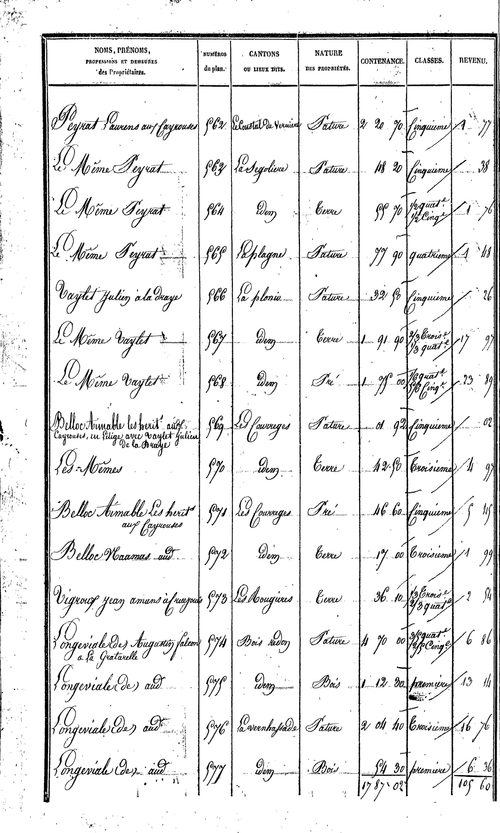 NOMS, PRÉNOMS, PROFESSIONS ET DEMEURES des Propriétaires. NUMÉROS du plan. CANTONS OU LIEUX DITS. NATURE DES PROPRIÉTÉS. CONTENANCE. CLASSES. REVENU.
Peyrat Laurens aux Cayrouses 562 Pature 2 20 70 Cinquieme 1 77
Le Même Peyrat 562 La Segoliere Pature 48 20 Cinquieme 38
Le Même Peyrat 564 idem Terre 55 70 ½ quat.e ½ Cinq.e 1 76
Le Même Peyrat 565 Laplagne Pature 77 90 quatrieme 1 48
Vaylet Julien à la draye 566 La plonie Pature 32 50 Cinquieme 26
Le Même Vaylet 567 idem Terre 1 91 90 2/3 Crois.e 1/3 quat.e 17 97
Le Même Vaylet 568 idem Pré 1 75 00 quat.e Cinq.e 23 89
Belloc Aimable les herit.s aux
Cayrouses, en litige avec Vaylet Julien
de la Draye 569 Les Courreges Pature 01 92 Cinquieme 02
Les Mêmes 570 idem Terre 42 50 Troisieme 4 97
Belloc Aimable Les herit.s
aux Cayrouses 571 Les Courreges Pré 46 60 Cinquieme 5
Belloc aud. 572 idem Terre 17 00 Troisieme 1 99
Vigroux Jean amans 573 Les Rougieres Terre 36 10 1/3 Crois.e 2/3 quat.e 2 54
Longeviale (de) Augustin
a La Gratarelle 574 Bois redon Pature 4 70 00 quat.e Cinq.e 6 86
Longeviale (de) aud. 575 idem Bois 1 12 30 première 13 14
Longeviale (de) aud. 576 Pature 2 04 40 Troisieme 16 76
Longeviale (de) aud. 577 idem Bois 54 30 première 6 36
17 87 02 105 60